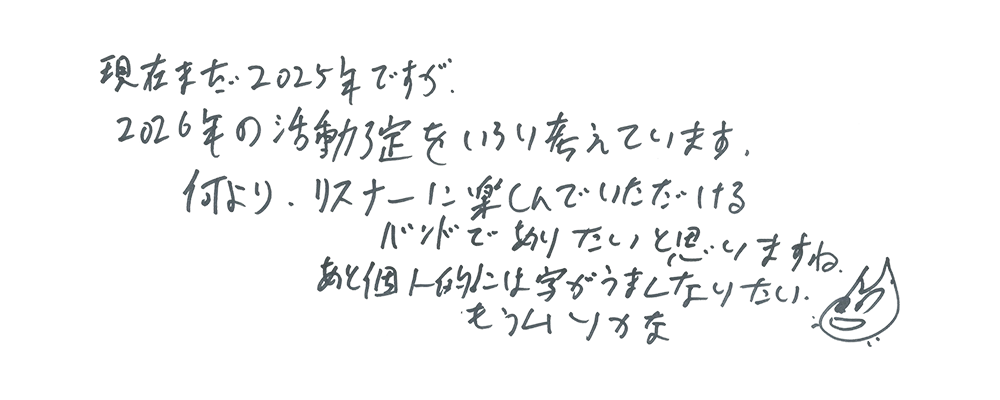 現在まだ2025年ですが、
2026年の活動予定をいろいろ考えています。
何より、リスナーに楽しんでいただける
バンドでありたいと思いますね。
あと個人的には字がうまくなりたい。
もうムリかな